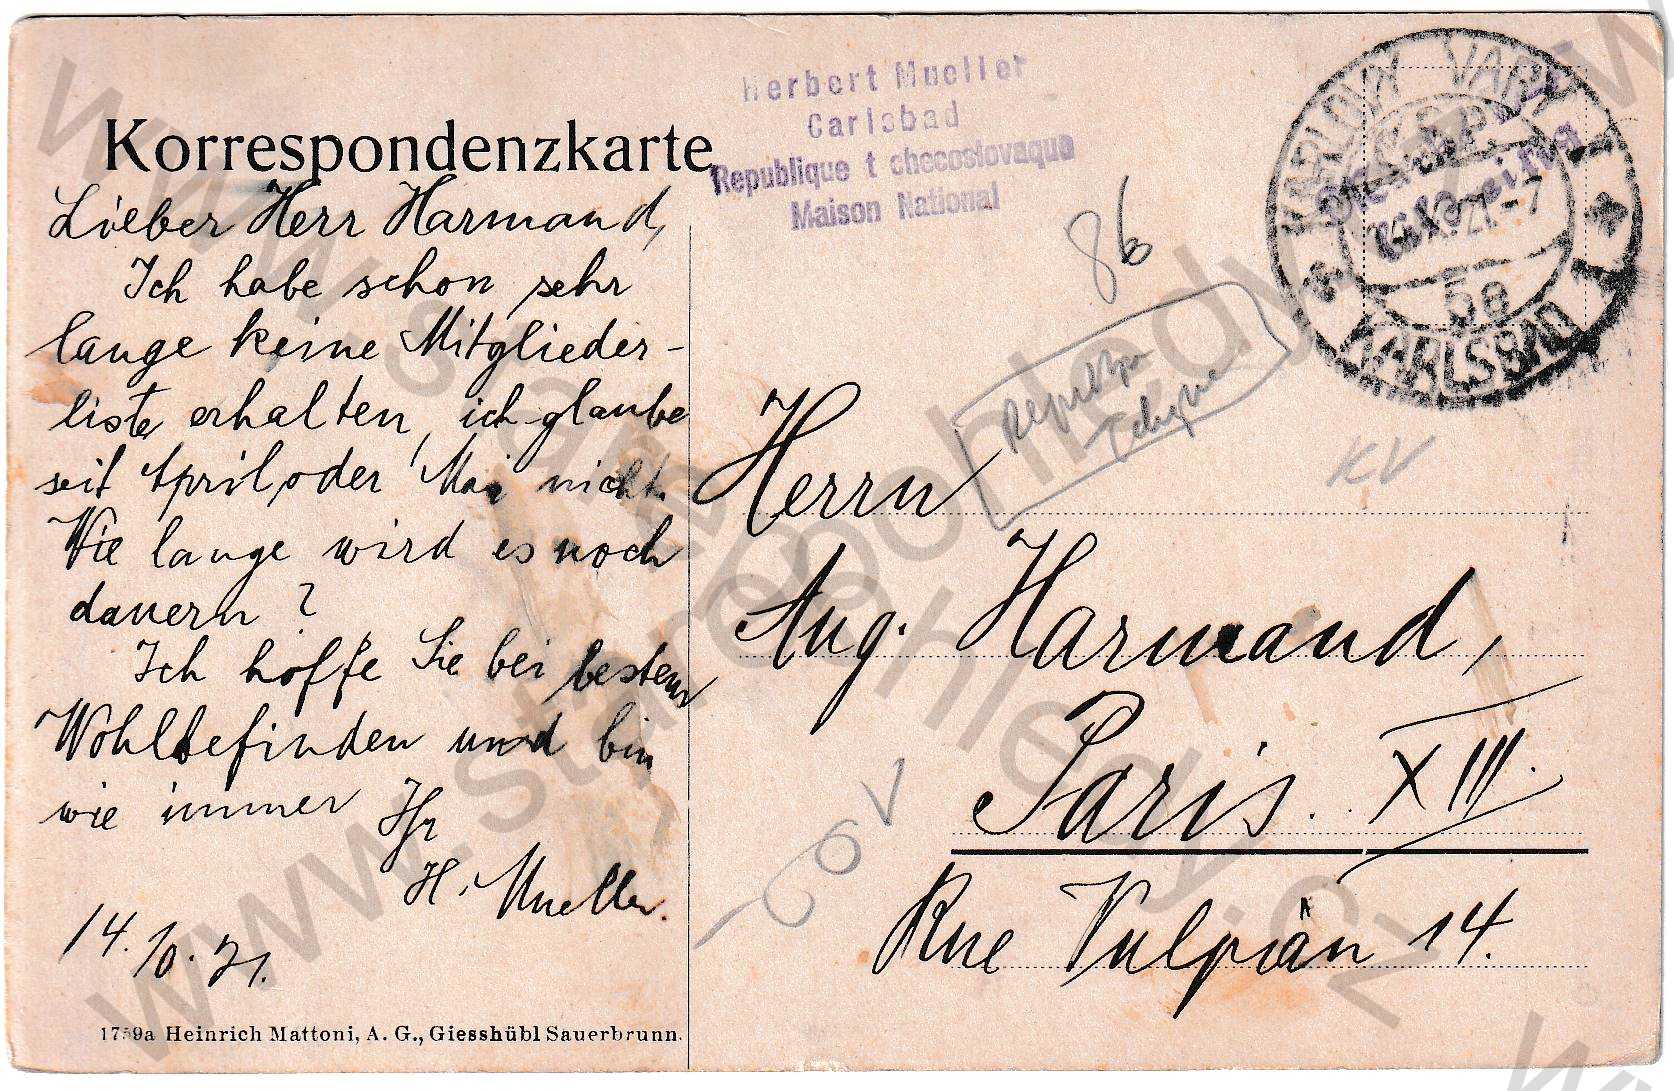 Korrespondenzkarte
Lieber Herr Harmand,
Ich habe schon sehr
lange keine Mitglieder-
liste erhalten, ich glaube
seit April, oder Mai nicht.
Wie lange wird es noch
dauern?
Ich hoffe Sie bei bestem
Wohlbefinden und bin
wie immer Ihr
H. Mueller.
14.10.21.
1759a Heinrich Mattoni, A. G., Giesshübl Sauerbrunn.
Herbert Mueller
Carlsbad
Republique tchecoslovaque
Maison National
86
KARLOVY VARY
21-7
5a
KARLSBAD
KV
Herrn
Aug. Harmand,
Paris. XIII.
Rue Vulpian 14.
www.starepohledy.cz